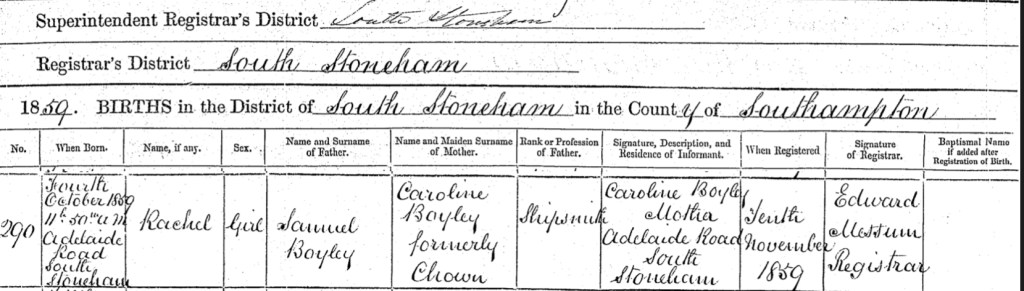 Superintendent Registrar's District South Stoneham
Registrar's District South Stoneham
1859. BIRTHS in the District of South Stoneham in the County of Southampton
No.
When Born.
Name, if any.
Sex.
Name and Surname
of Father.
Name and Maiden Surname
of Mother.
Rank or Profession
of Father.
Signature, Description, and
Residence of Informant.
When Registered
Signature
of Registrar.
Baptismal Name
if added after
Registration of Birth.
290
Fourth
October 1859
11h 50m a.m
Adelaide
Road
South
Stoneham
Rachel
Girl
Samuel
Boyley
Caroline
Boyley
formerly
Chown
Shipsmith
Caroline Boyley
Mother
Adelaide Road
South
Stoneham
Tenth
November
1859
Edward
Mossum
Registrar